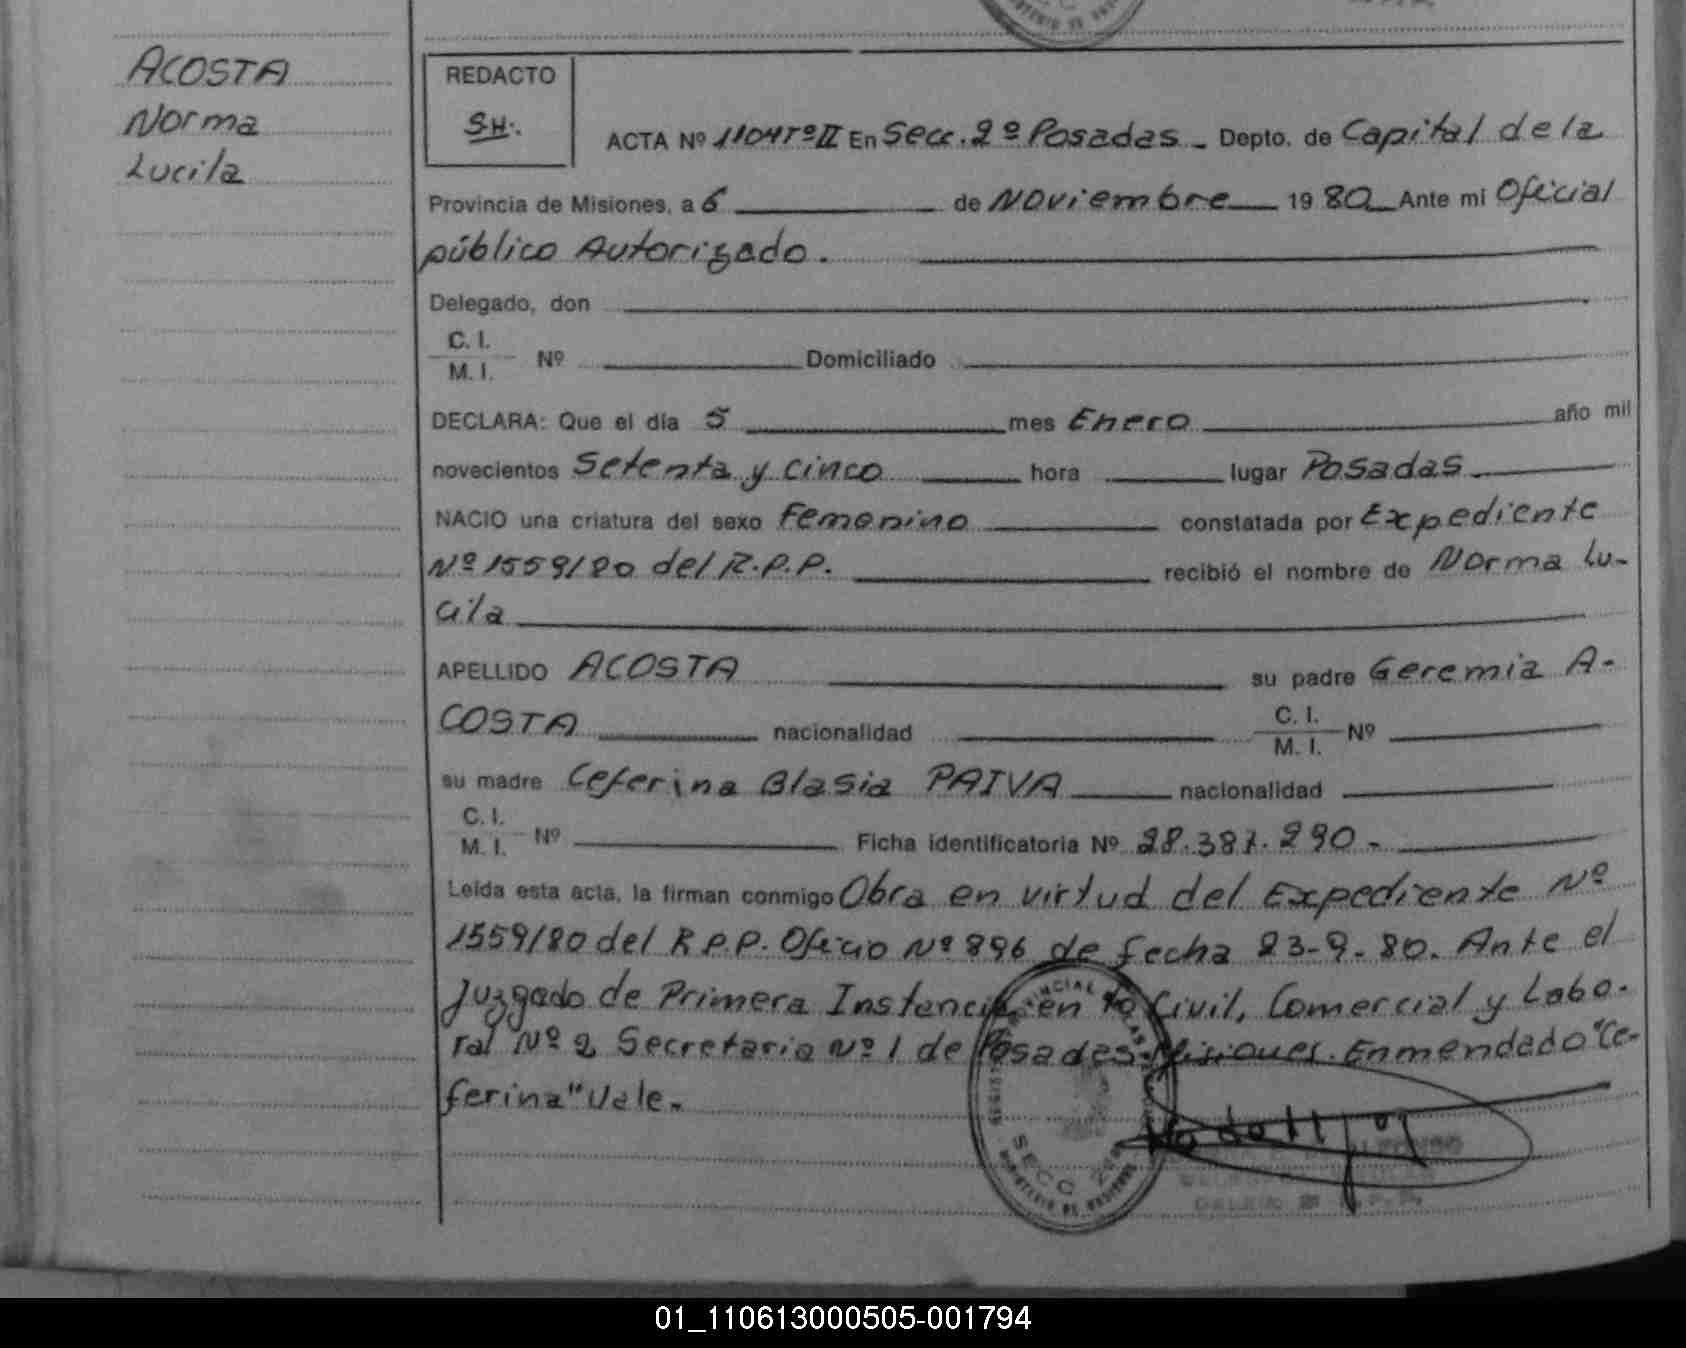 ACOSTA
Norma
Lucila
REDACTO
S.H.
ACTA Nº 1104 Tº II En Secc. 2º Posadas - Depto. de Capital de la
Provincia de Misiones, a 6 de Noviembre 1980 Ante mi Oficial
público Autorizado.
Delegado, don
C. I.
M. I. Nº Domiciliado
DECLARA: Que el día 5 mes Enero año mil
novecientos Setenta y cinco hora lugar Posadas
NACIO una criatura del sexo Femenino constatada por Expediente
Nº 1559/80 del R.P.P. recibió el nombre de Norma Lu-
cila
APELLIDO ACOSTA su padre Geremia A-
COSTA nacionalidad C. I. M. I. Nº
su madre Ceferina Blasia PAIVA nacionalidad
C. I.
M. I. Nº Ficha identificatoria Nº 28.387.290.-
Leída esta acta, la firman conmigo Obra en virtud del Expediente Nº
1559/80 del R.P.P. Oficio Nº 896 de fecha 23-9-80. Ante el
Juzgado de Primera Instancia en lo Civil, Comercial y Labo-
ral Nº 2 Secretaria Nº 1 de Posadas Misiones. Enmendado "Ce-
ferina" Vale.
SECC
01_110613000505-001794